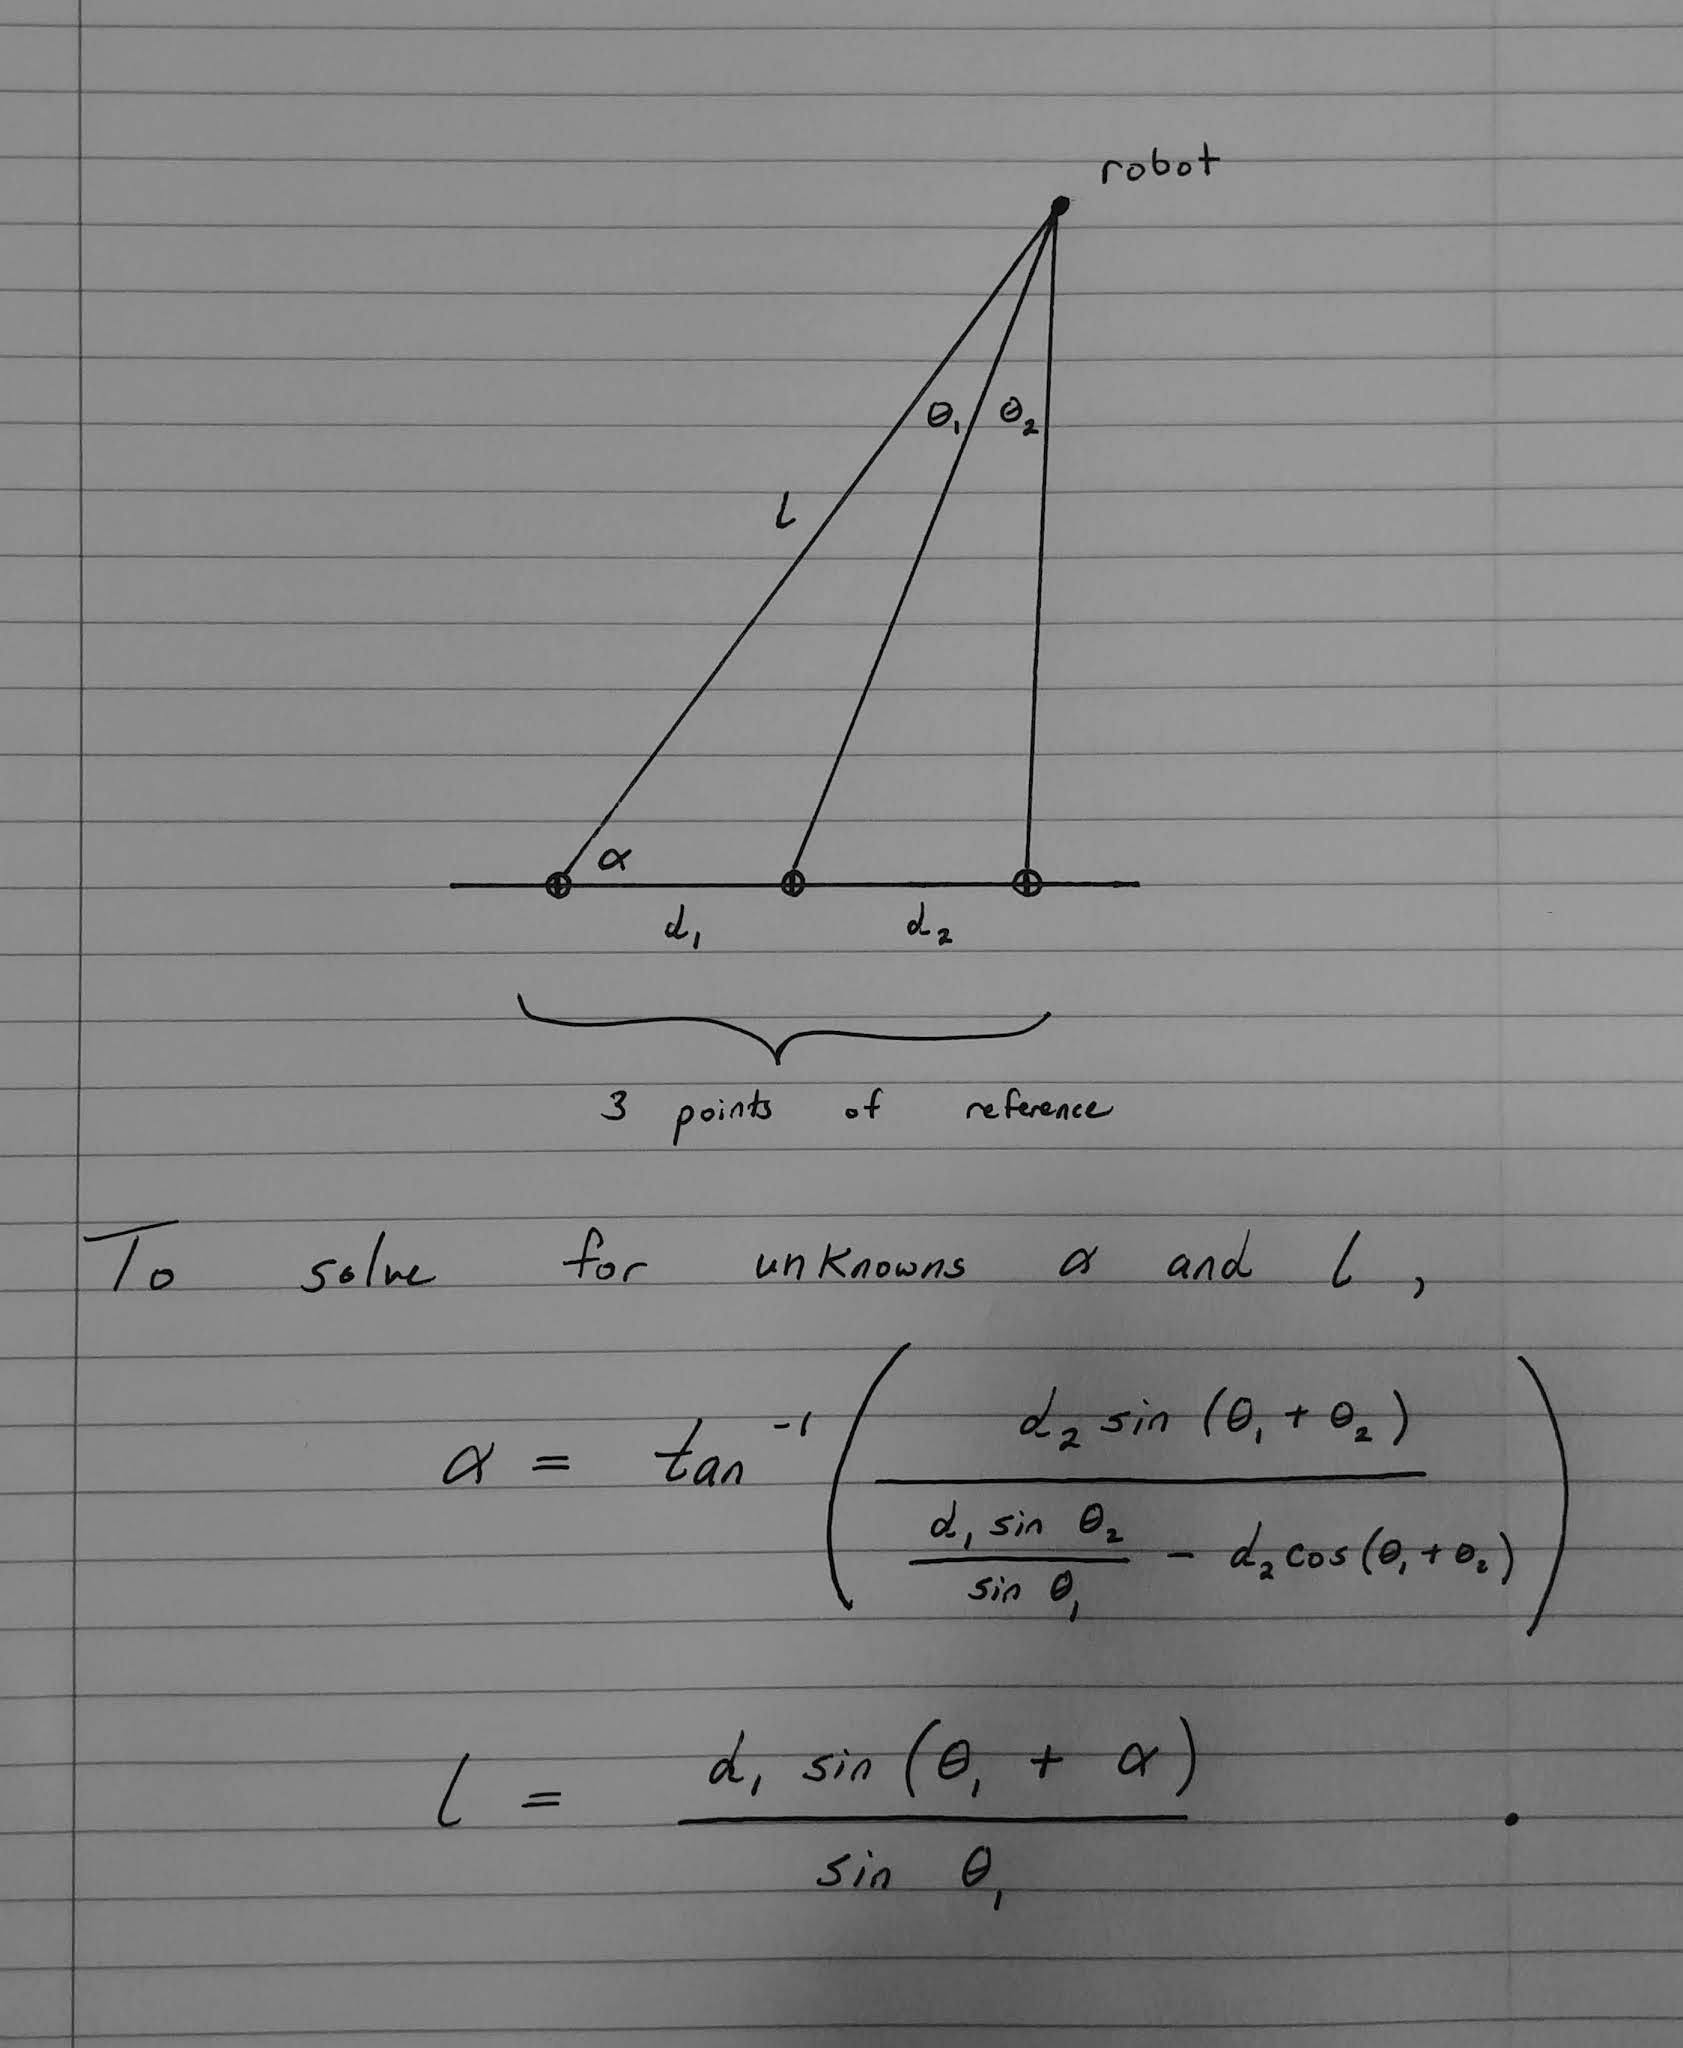 robot
θ₁ θ₂
l
α
d₁ d₂
3 points of reference
To solve for unknowns α and l,
α = tan⁻¹ ( d₂ sin (θ₁ + θ₂) / ( d₁ sin θ₂ / sin θ₁ - d₂ cos (θ₁ + θ₂) ) )
l = d₁ sin (θ₁ + α) / sin θ₁ .